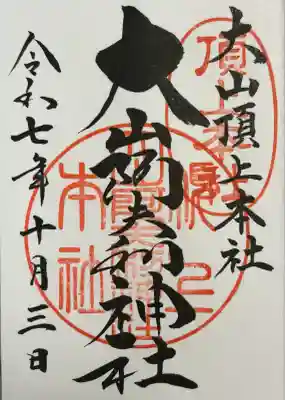 大山頂上本社
大山阿夫利神社
令和七年十月三日
頂上
本社